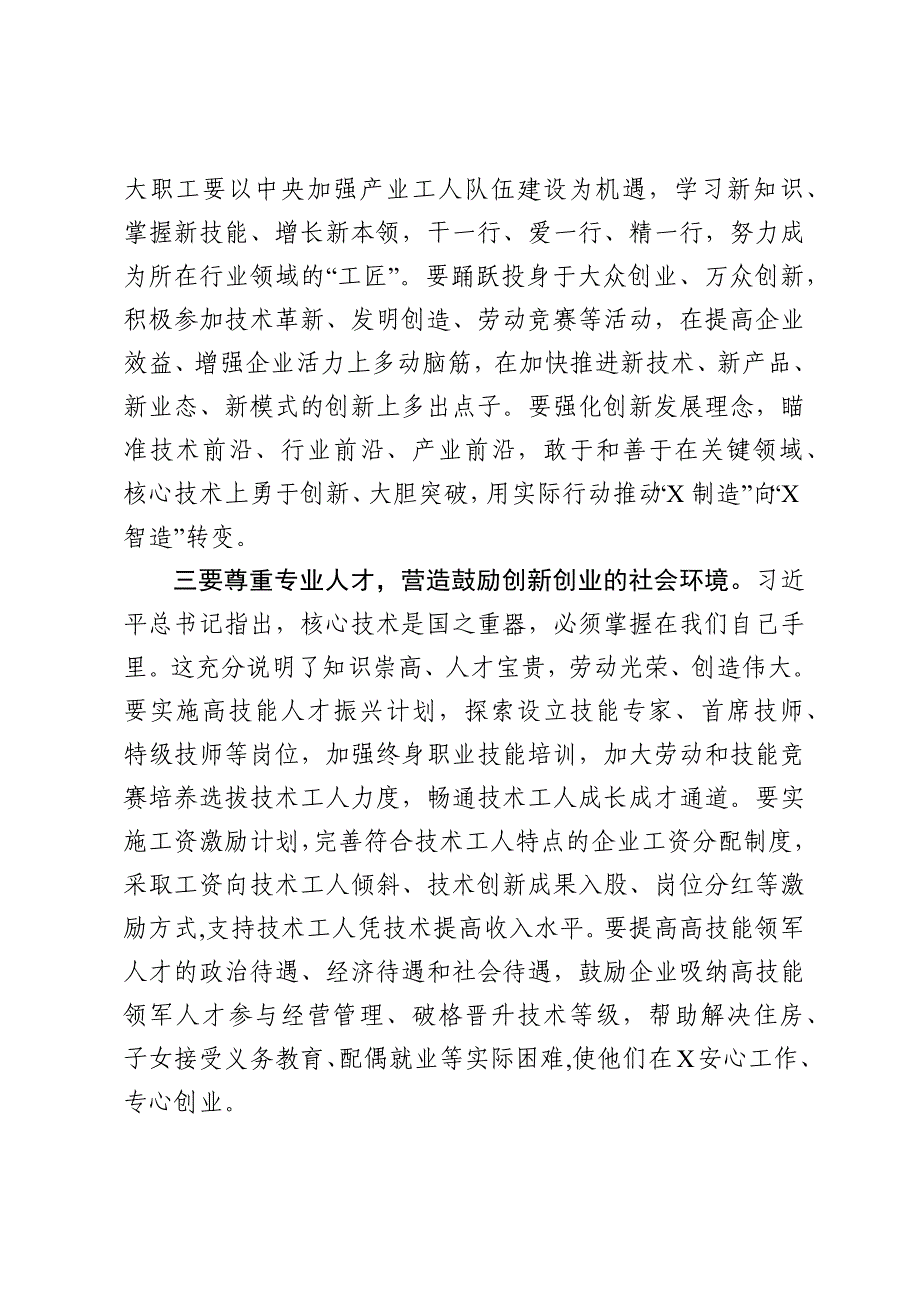 大职工要以中央加强产业工人队伍建设为机遇，学习新知识、
掌握新技能、增长新本领，干一行、爱一行、精一行，努力成
为所在行业领域的“工匠”。要踊跃投身于大众创业、万众创新，
积极参加技术革新、发明创造、劳动竞赛等活动，在提高企业
效益、增强企业活力上多动脑筋，在加快推进新技术、新产品、
新业态、新模式的创新上多出点子。要强化创新发展理念，瞄
准技术前沿、行业前沿、产业前沿，敢于和善于在关键领域、
核心技术上勇于创新、大胆突破，用实际行动推动“X 制造”向“X
智造”转变。
三要尊重专业人才，营造鼓励创新创业的社会环境。习近
平总书记指出，核心技术是国之重器，必须掌握在我们自己手
里。这充分说明了知识崇高、人才宝贵，劳动光荣、创造伟大。
要实施高技能人才振兴计划，探索设立技能专家、首席技师、
特级技师等岗位，加强终身职业技能培训，加大劳动和技能竞
赛培养选拔技术工人力度，畅通技术工人成长成才通道。要实
施工资激励计划，完善符合技术工人特点的企业工资分配制度，
采取工资向技术工人倾斜、技术创新成果入股、岗位分红等激
励方式,支持技术工人凭技术提高收入水平。要提高高技能领军
人才的政治待遇、经济待遇和社会待遇，鼓励企业吸纳高技能
领军人才参与经营管理、破格晋升技术等级，帮助解决住房、
子女接受义务教育、配偶就业等实际困难,使他们在 X 安心工作、
专心创业。